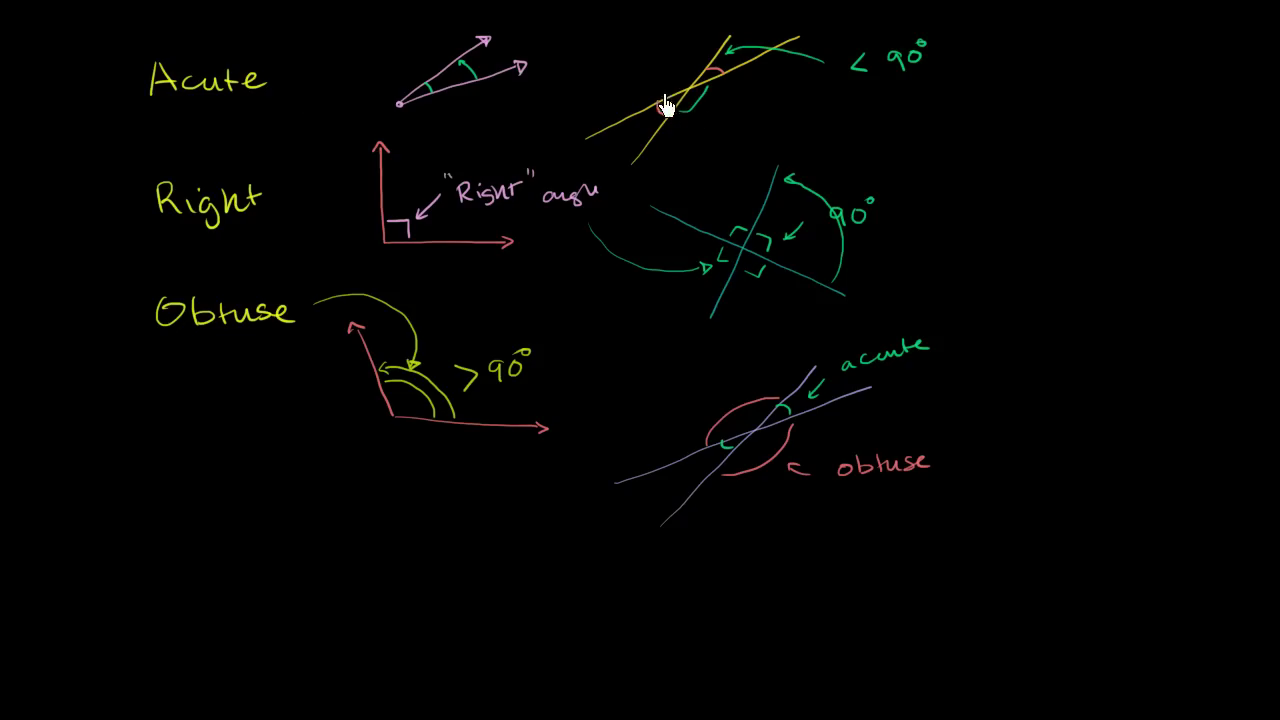 Acute
< 90°
Right
"Right" angle
90°
Obtuse
> 90°
acute
obtuse